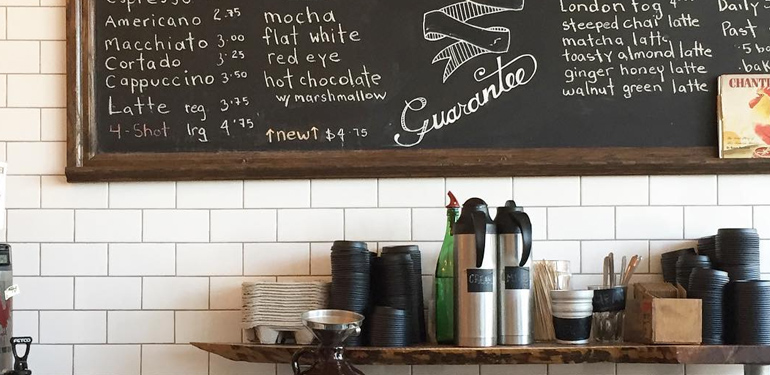 Espresso
Americano 2.75
Macchiato 3.00
Cortado 3.25
Cappuccino 3.50
Latte reg. 3.75
4-Shot lrg 4.75
mocha
flat white
red eye
hot chocolate
w/ marshmallow
↑new↑ $4.75
Guarantee
London fog
steeped chai latte
matcha latte
toasty almond latte
ginger honey latte
walnut green latte
Daily
Past
CHANTI
FETCO